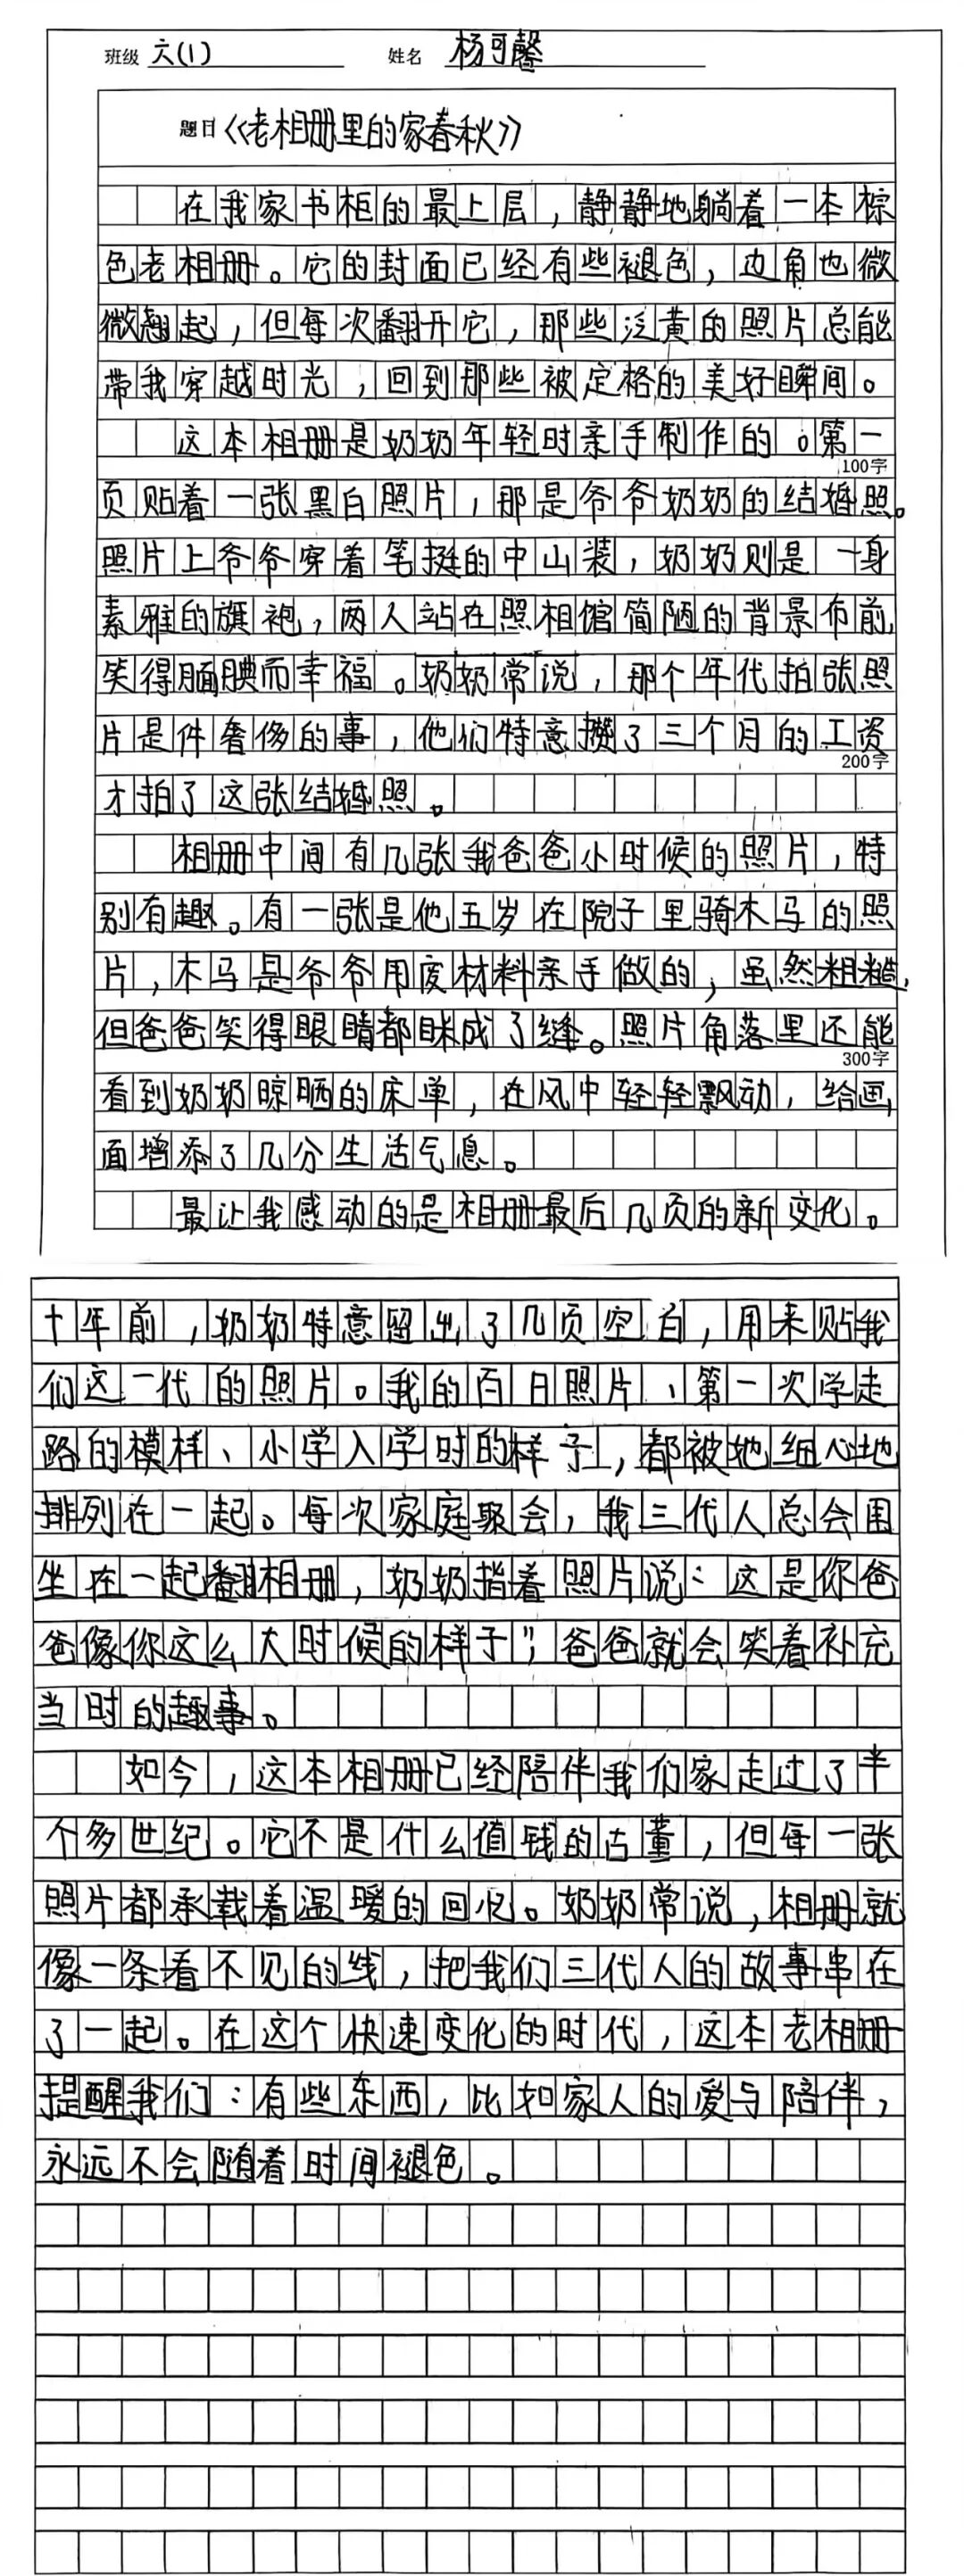 班级 六(1) 姓名 杨可馨
题目《老相册里的家春秋》
在我家书柜的最上层，静静地躺着一本棕
色老相册。它的封面已经有些褪色，边角也微
微翘起，但每次翻开它，那些泛黄的照片总能
带我穿越时光，回到那些被定格的美好瞬间。
这本相册是奶奶年轻时亲手制作的。第一
100字
页贴着一张黑白照片，那是爷爷奶奶的结婚照。
照片上爷爷穿着笔挺的中山装，奶奶则是一身
素雅的旗袍，两人站在照相馆简陋的背景布前，
笑得腼腆而幸福。奶奶常说，那个年代拍张照
片是件奢侈的事，他们特意攒了三个月的工资
200字
才拍了这张结婚照。
相册中间有几张我爸爸小时候的照片，特
别有趣。有一张是他五岁在院子里骑木马的照
片，木马是爷爷用废材料亲手做的，虽然粗糙，
但爸爸笑得眼睛都眯成了缝。照片角落里还能
300字
看到奶奶晾晒的床单，在风中轻轻飘动，给画
面增添了几分生活气息。
最让我感动的是相册最后几页的新变化。
十年前，奶奶特意留出了几页空白，用来贴我
们这一代的照片。我的百日照片、第一次学走
路的模样、小学入学时的样子，都被她细心地
排列在一起。每次家庭聚会，我三代人总会围
坐在一起翻相册，奶奶指着照片说：这是你爸
爸像你这么大时候的样子"，爸爸就会笑着补充
当时的趣事。
如今，这本相册已经陪伴我们家走过了半
个多世纪。它不是什么值钱的古董，但每一张
照片都承载着温暖的回忆。奶奶常说，相册就
像一条看不见的线，把我们三代人的故事串在
了一起。在这个快速变化的时代，这本老相册
提醒我们：有些东西，比如家人的爱与陪伴，
永远不会随着时间褪色。